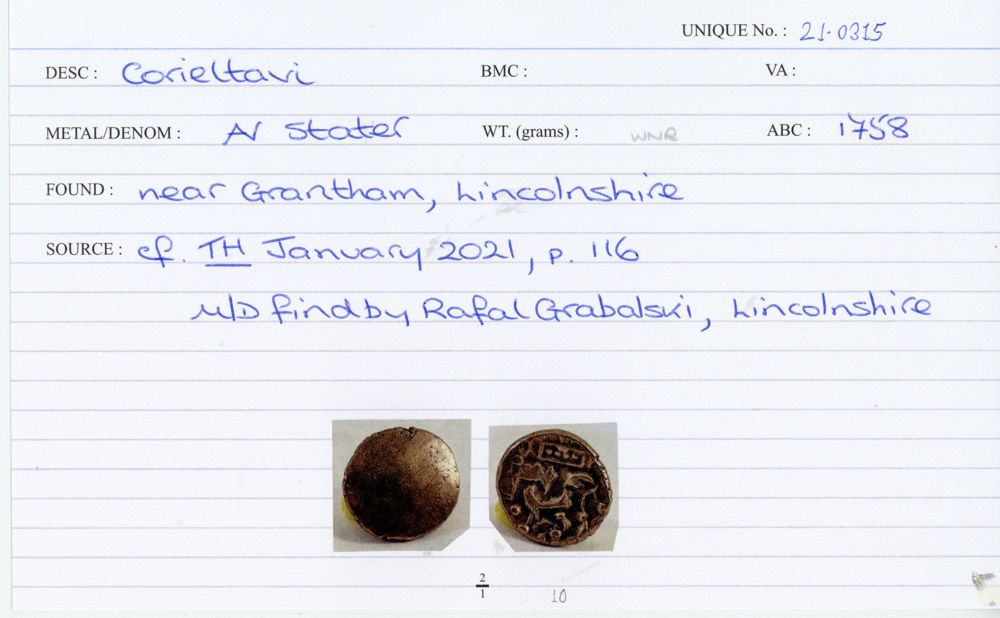 UNIQUE No. : 21.0315
DESC : Corieltavi BMC : VA :
METAL/DENOM : AV Stater WT. (grams) : WNR ABC : 1758
FOUND : near Grantham, Lincolnshire
SOURCE : cf. TH January 2021, p. 116
M/D find by Rafal Grabalski, Lincolnshire
2/1
10